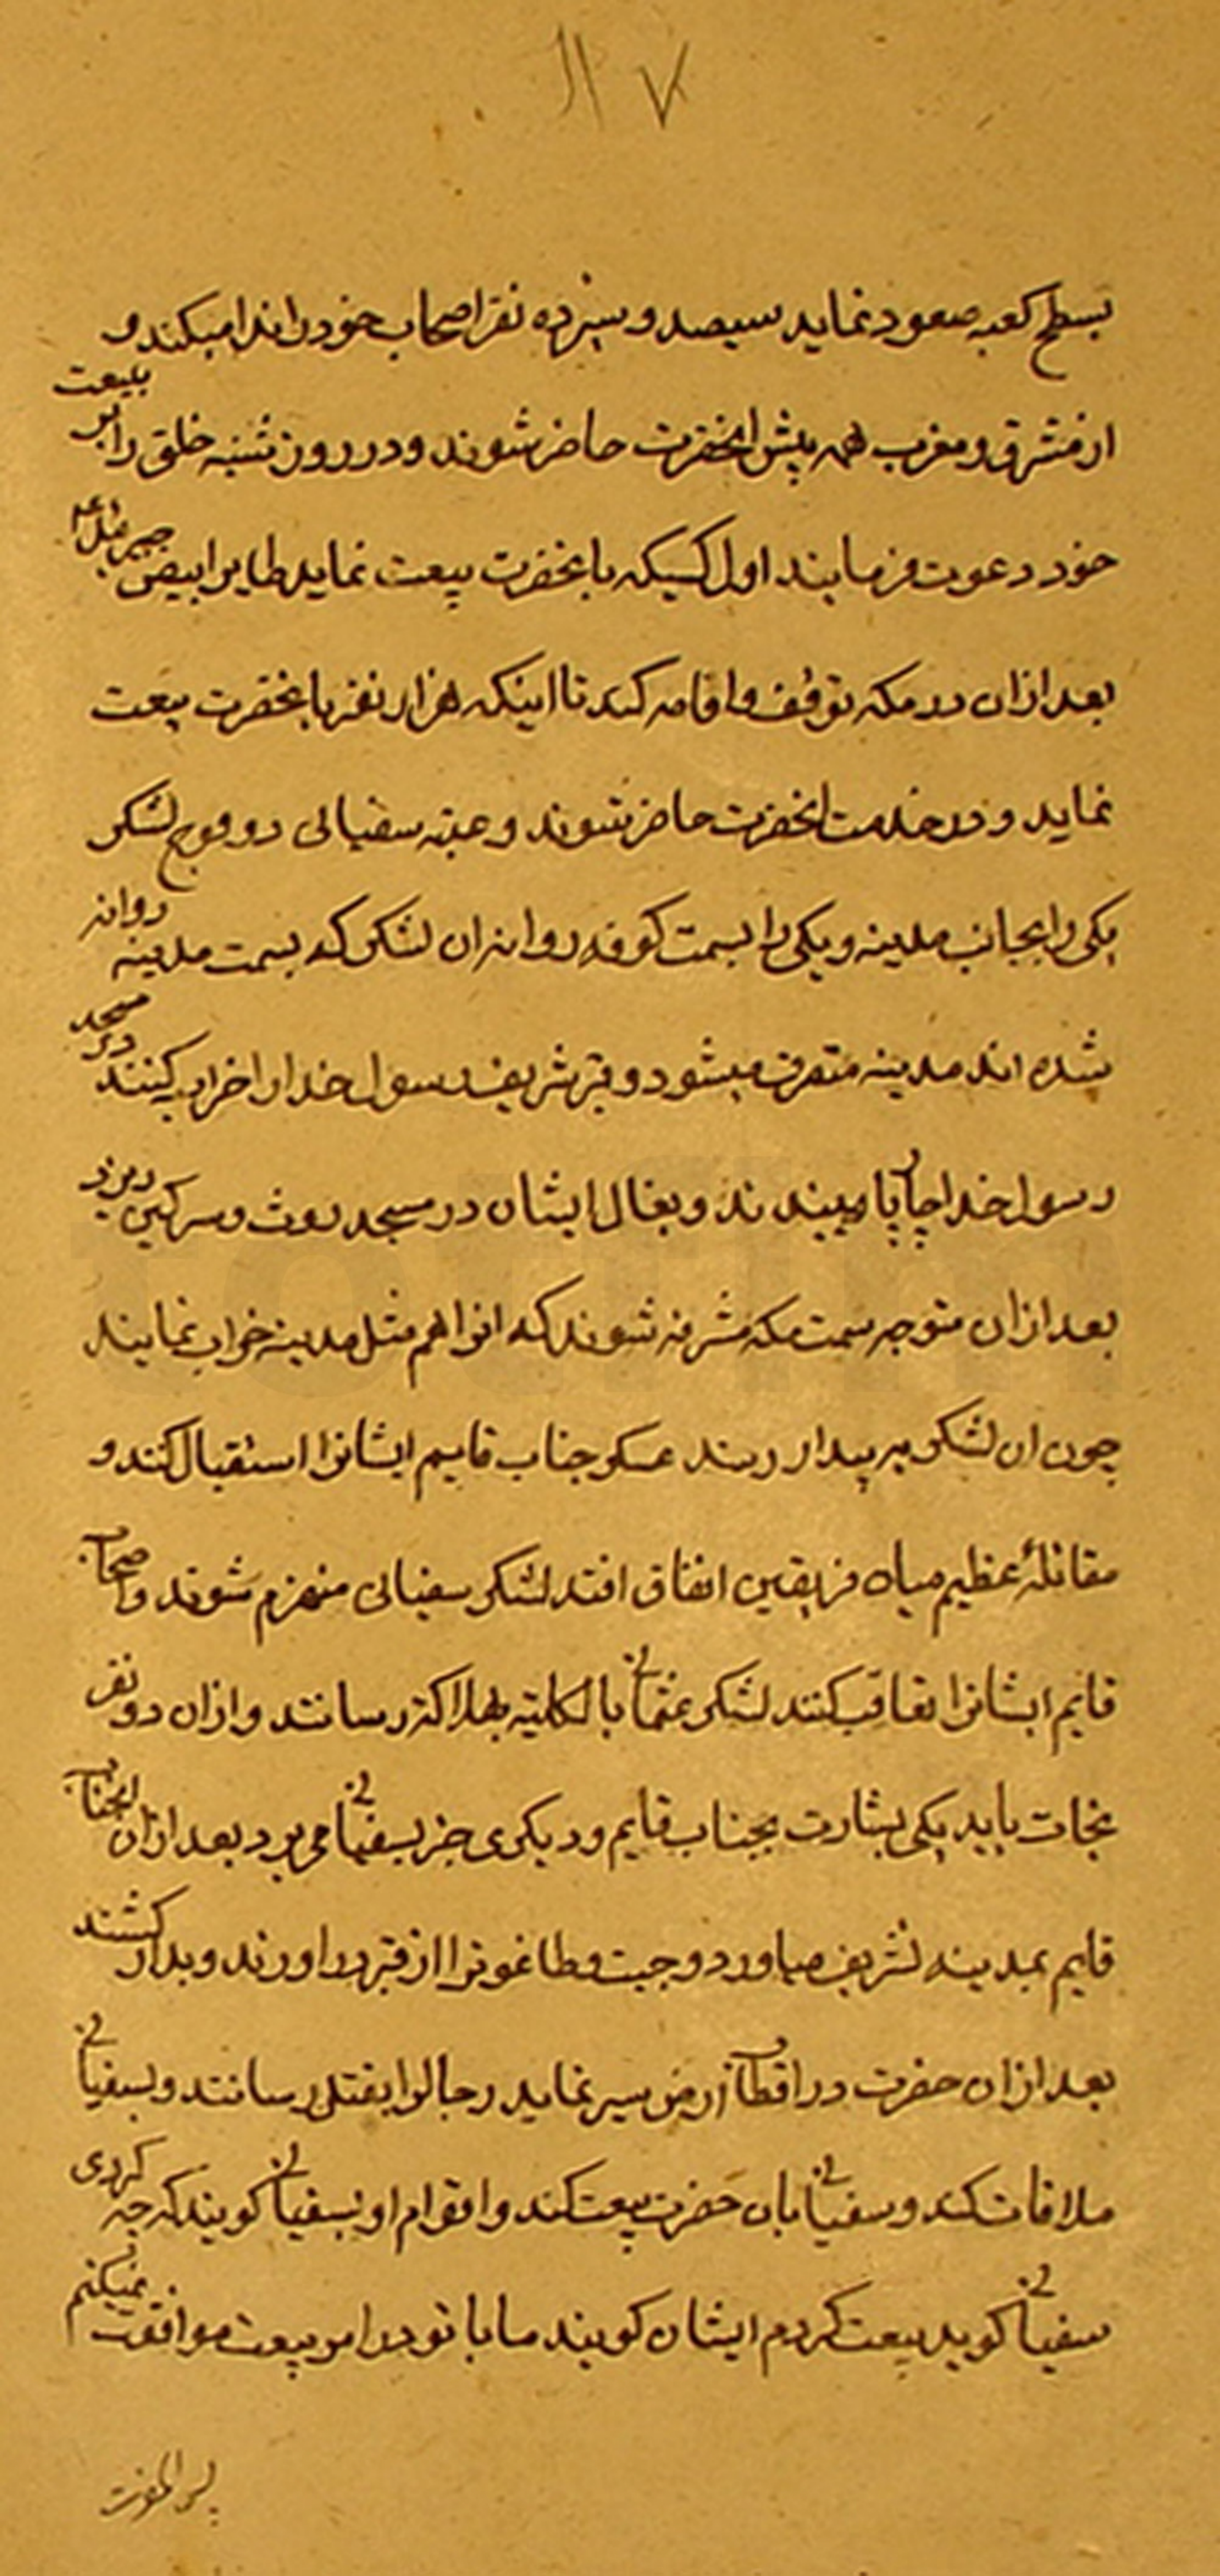 ۱۱۷
بسطح کعبه صعود نماید سیصد و سیزده نفر اصحاب خود را ندا میکند و
از مشرق و مغرب همه پیش انحضرت حاضر شوند و در روز شنبه خلق را بر بیعت
خود دعوت فرمایند اول کسیکه با نحضرت بیعت نماید طایر ابیض جبرئیل ع
بعد از ان در مکه توقف و اقامه کند تا اینکه هزار نفر با نحضرت بیعت
نماید و در خدمت انحضرت حاضر شوند و عتبه سفیانی دو فوج لشکر
یکی را بجانب مدینه و یکی را بسمت کوفه روانه ان لشکر که بسمت مدینه روانه
شده اند مدینه متصرف میشود و قبر شریف رسول خدا را خراب کنند در مسجد
رسول خدا چاپا میبندند و بغال ایشان در مسجد روث و سرکین میریزد
بعد از ان متوجه سمت مکه مشرفه شوند که انرا هم مثل مدینه خراب نمایند
چون ان لشکر به بیدا رسند عسکر جناب قایم ایشانرا استقبال کند و
مقاتلهٔ عظیم میان فریقین اتفاق افتد لشکر سفیانی منهزم شوند و اصحاب
قایم ایشانرا تعاقب کنند لشکر عثمانی بالکلیه بهلاکت رسانند و از ان دو نفر
نجات یابد یکی بشارت بجناب قایم و دیکری خبر بسفیانی می برد بعد از ان انجناب
قایم بمدینه تشریف میاورد و جبت و طاغوترا از قبر در اورند و بدار کشند
بعد از ان حضرت در اقطاب ارض سیر نماید رجال را بقتل رسانند و بسفیانی
ملاقات کند و سفیانی بان حضرت بیعت کند و اقوام او بسفیانی کویند که چه کردی
سفیانی کوید بیعت کردم ایشان کویند ما با تو در امر بیعت موافقت نمیکنم
پس انحضرت